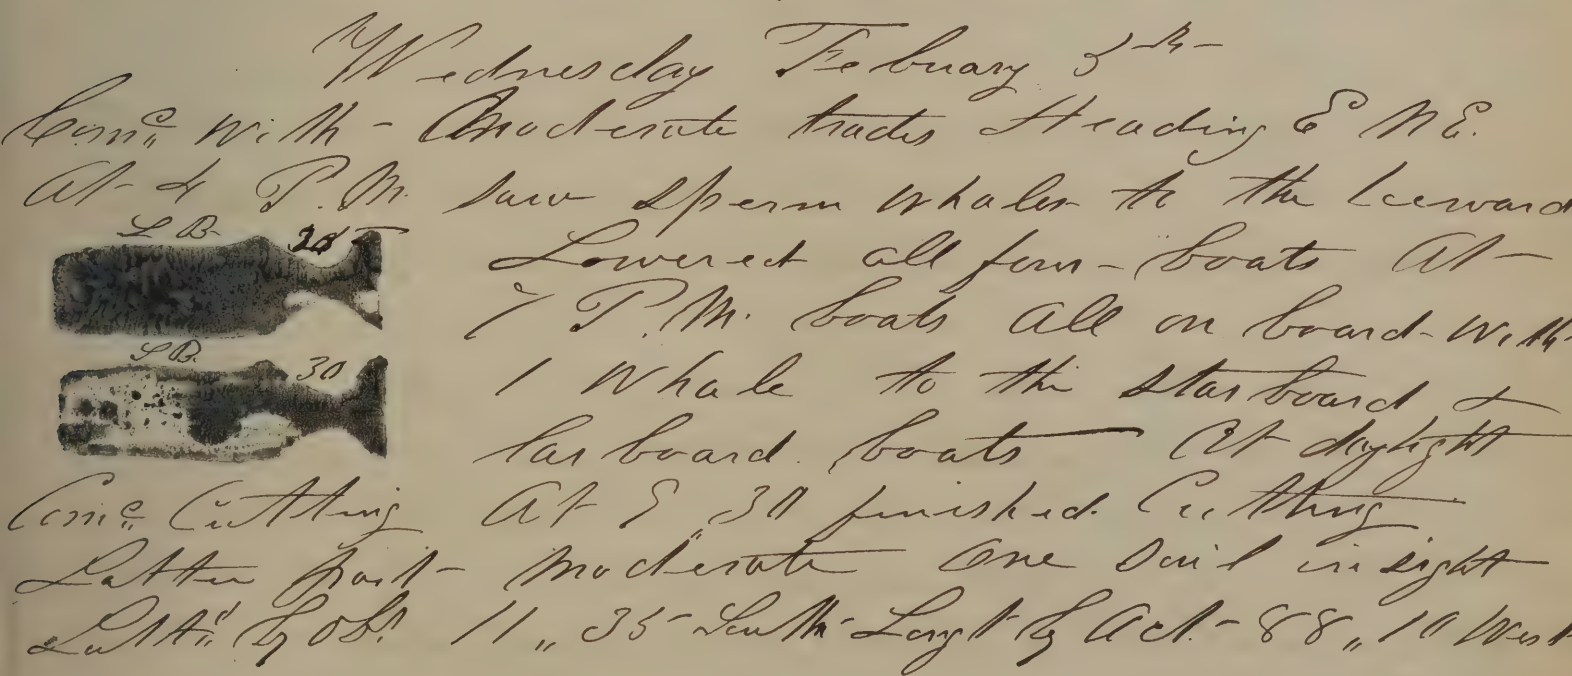 Wednesday Febuary 3th
Comc. with Moderate trades Heading E N E.
At 4 P.M. saw sperm whales to the leeward
S B
Lowered all four boats At
7 P.M. boats all on board with
S B. 30
1 whale to the starboard &
larboard boats At daylight
Comc. Cutting At 8,,30 finished Cutting
Latter part moderate one sail in sight
Lattd. by obs. 11,,35 South Longt by Act. 88,,10 West